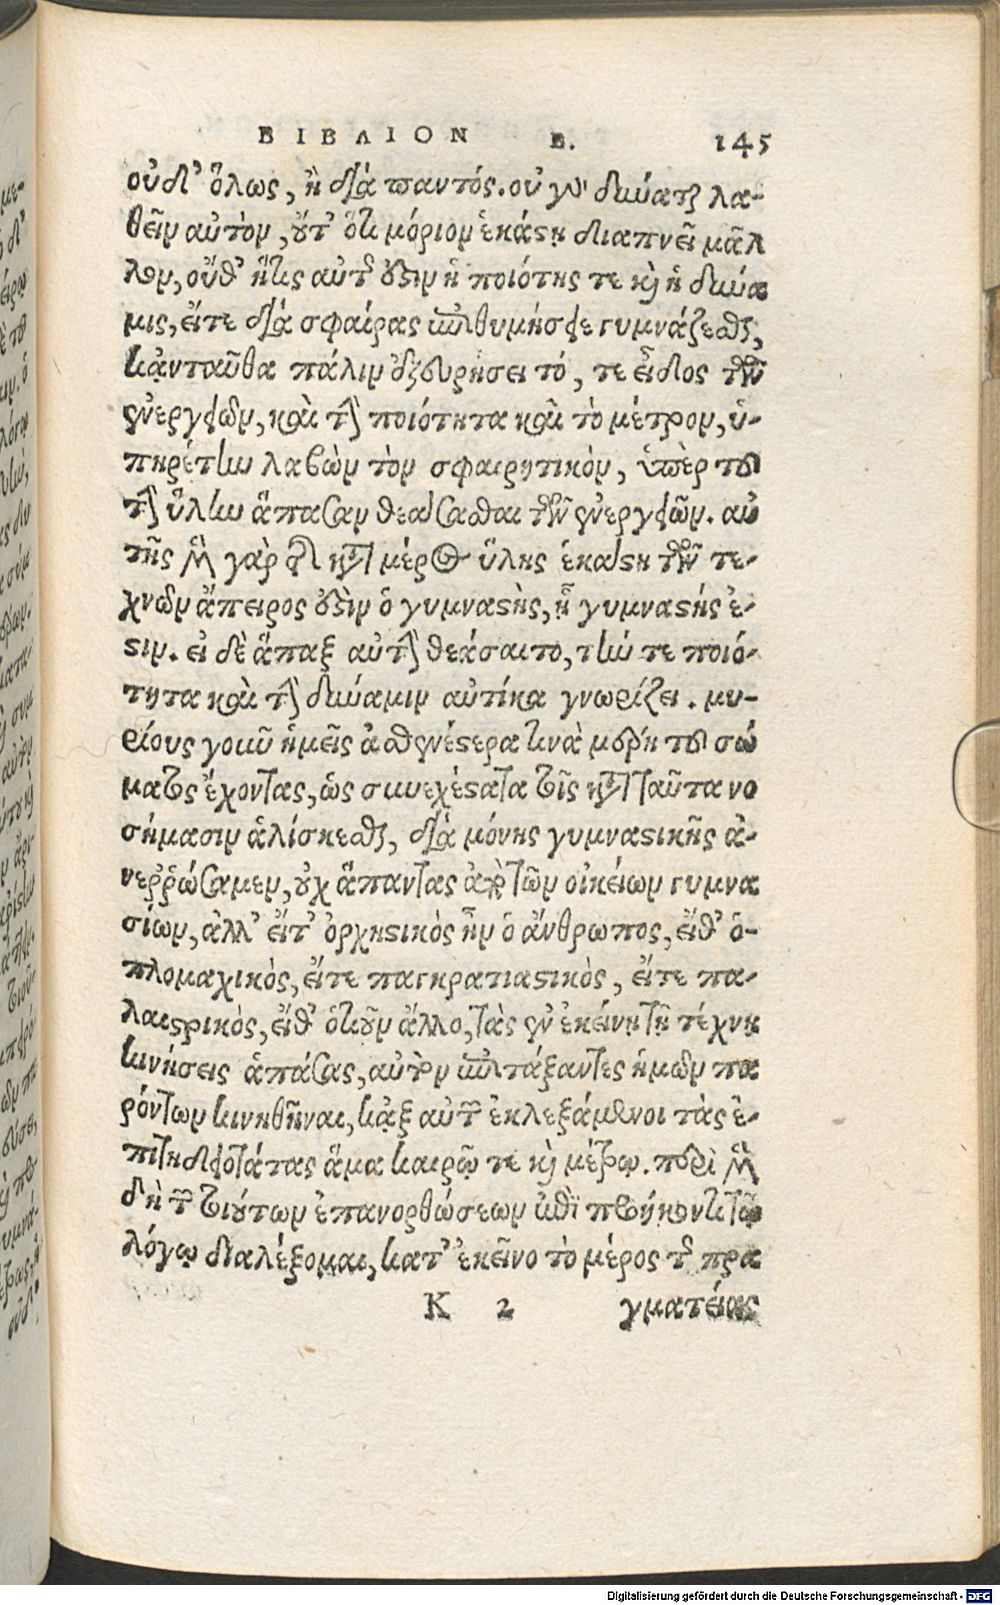 ΒΙΒΛΙΟΝ Β. 145
οὐδ' ὅλως, ἢ διὰ παντός. οὐ γὰρ δύναται λα-
θεῖν αὐτὸν, οὔτ' ὅτι μόριον ἑκάστη διαπνεῖ μᾶλ
λον, οὔθ' ἥτις αὐτοῦ ἐστιν ἡ ποιότης τε καὶ ἡ δύνα
μις, εἴτε διὰ σφαίρας ἐπιθυμήσειε γυμνάζεσθαι,
κἀνταῦθα πάλιν ἐξευρήσει τό, τε εἶδος τῶν
ἐνεργειῶν, καὶ τὴν ποιότητα καὶ τὸ μέτρον, ὑ-
πηρέτην λαβὼν τὸν σφαιρητικὸν, ὑπὲρ τοῦ
τὴν ὕλην ἅπασαν θεάσασθαι τῶν ἐνεργειῶν. αὐ
τῆς μὲν γὰρ τῆς κατὰ μέρος ὕλης ἑκάστη τῶν τε-
χνῶν ἄπειρος ἐστὶν ὁ γυμναστὴς, ᾗ γυμναστής ἐ-
στιν. εἰ δὲ ἅπαξ αὐτὴν θεάσαιτο, τήν τε ποιό-
τητα καὶ τὴν δύναμιν αὐτίκα γνωρίζει. μυ-
ρίους γοῦν ἡμεῖς ἀσθενέστερα τινὰ μόρια τοῦ σώ
ματος ἔχοντας, ὡς συνεχέστατα τοῖς κατὰ ταῦτα νο
σήμασιν ἁλίσκεσθαι, διὰ μόνης γυμναστικῆς ἀ-
νεῤῥώσαμεν, οὐχ ἅπαντας ἀπὸ τῶν οἰκείων γυμνα
σίων, ἀλλ' εἴτ' ὀρχηστικὸς ἦν ὁ ἄνθρωπος, εἴθ' ὁ-
πλομαχικὸς, εἴτε παγκρατιαστικὸς, εἴτε πα-
λαιστρικὸς, εἴθ' ὁτιοῦν ἄλλο, τὰς ἐν ἐκείνῃ τῇ τέχνῃ
κινήσεις ἁπάσας, αὐτὸν ἐπιτάξαντες ἡμῶν πα
ρόντων κινηθῆναι, κἀξ αὐτῶν ἐκλεξάμενοι τὰς ἐ-
πιτηδειοτάτας ἅμα καιρῷ τε καὶ μέτρῳ. περὶ μὲν
δὴ τῶν τοιούτων ἐπανορθώσεων ἐπὶ προήκοντι τῷ
λόγῳ διαλέξομαι, κατ' ἐκεῖνο τὸ μέρος τῆς πρα
K 2 γματείας
Digitalisierung gefördert durch die Deutsche Forschungsgemeinschaft - DFG